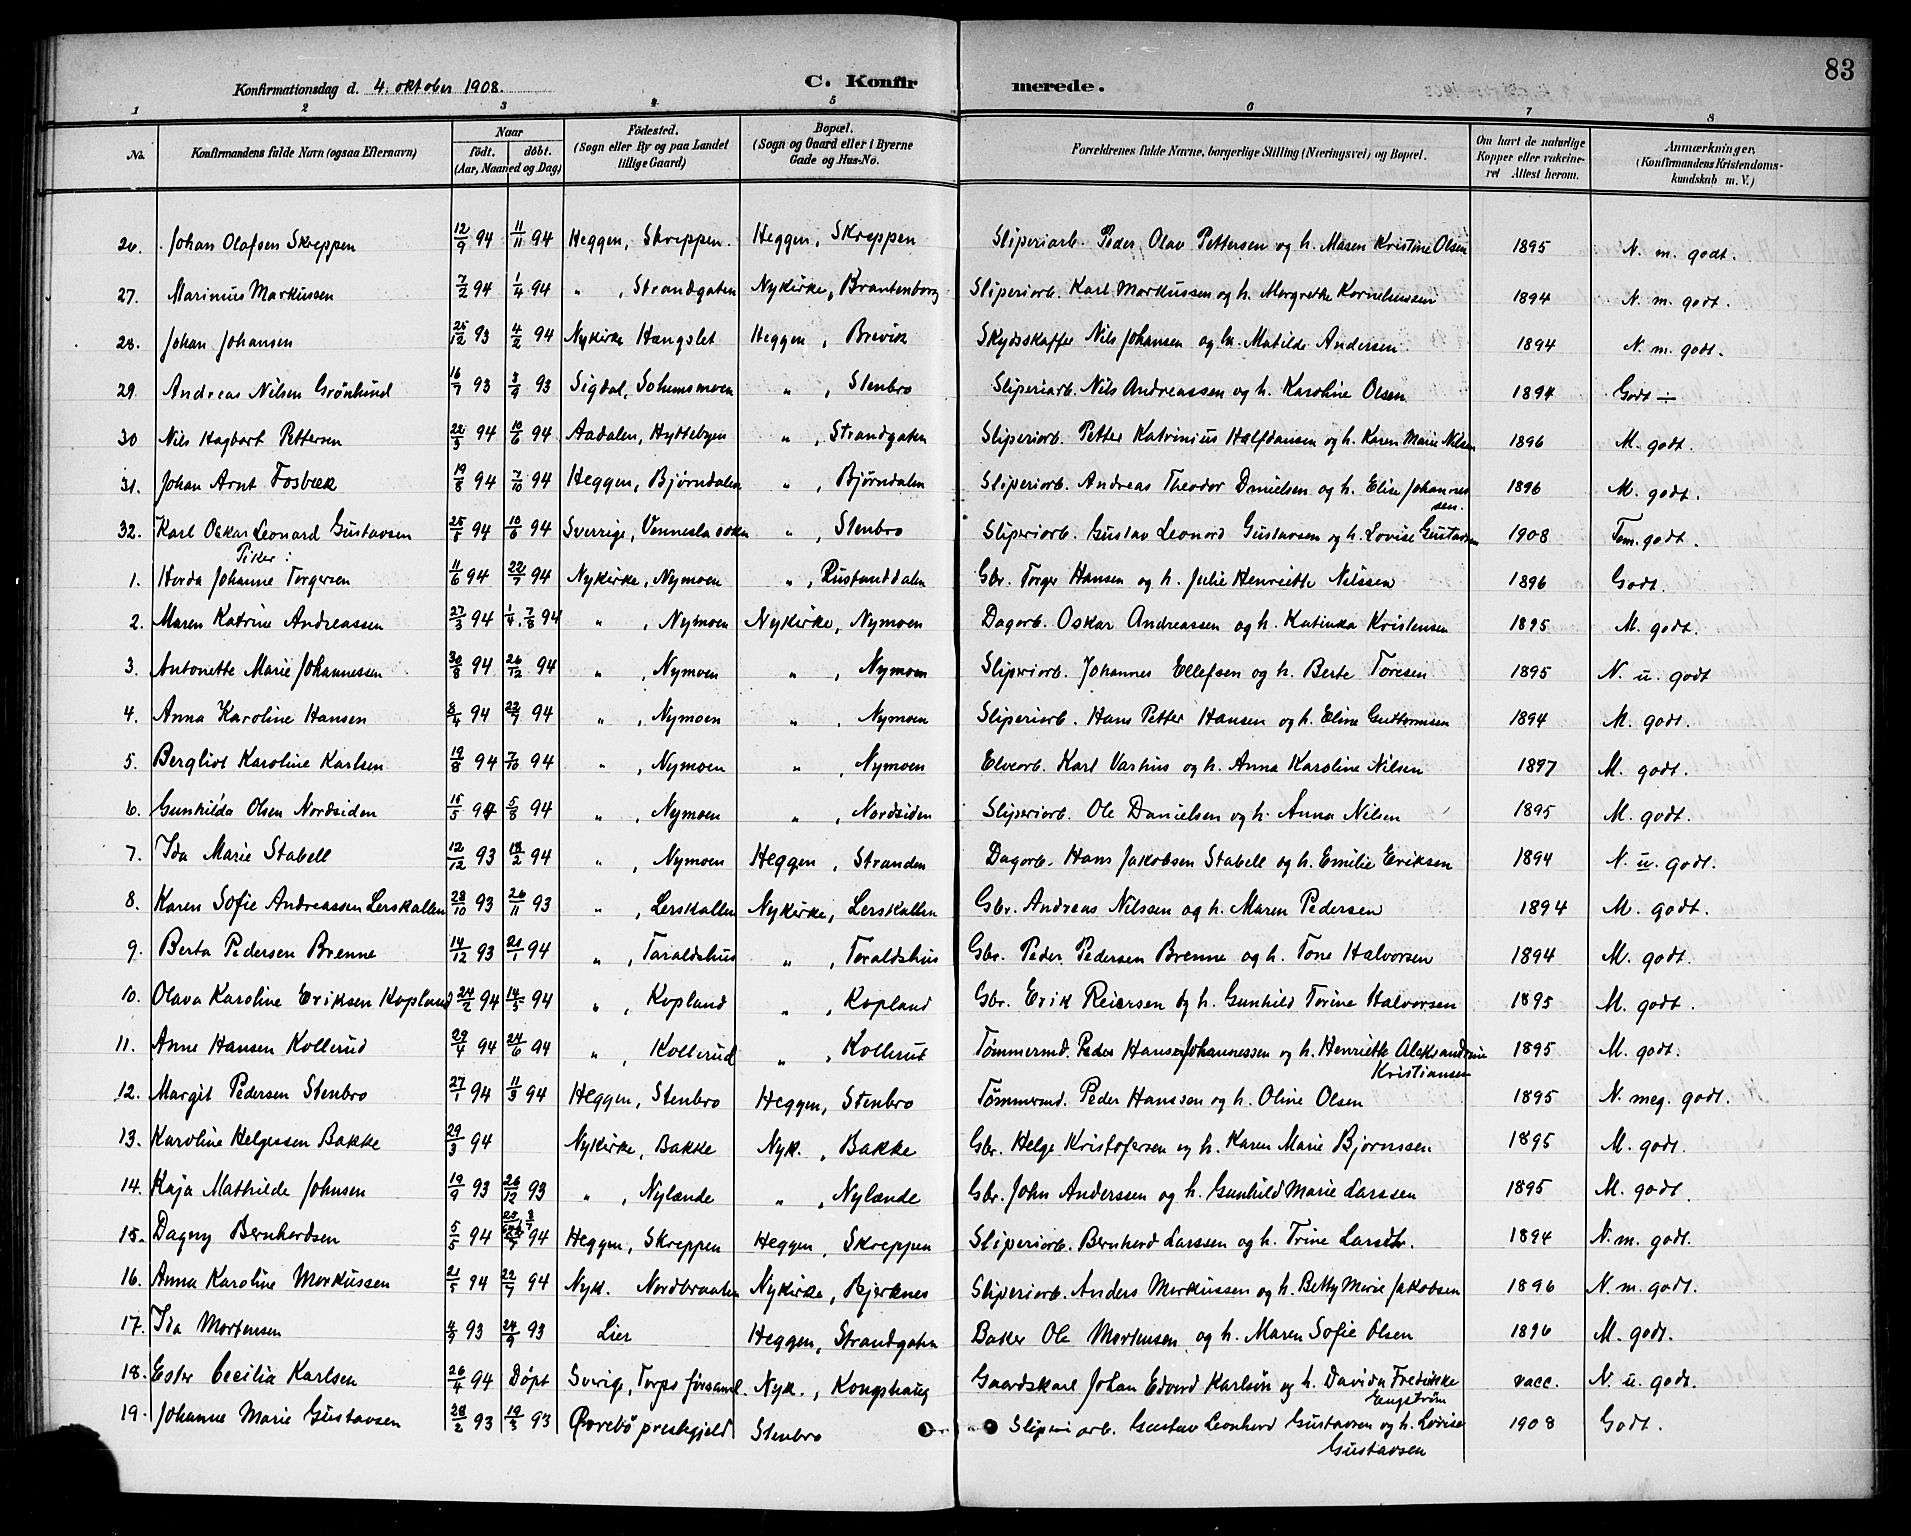 83
Konfirmationsdag d. 4. oktober 1908.
C. Konfirmerede.
1 2 3 4 5 6 7 8
No. Konfirmandens fulde Navn (ogsaa Efternavn) Naar født. døbt. (Aar, Maaned og Dag) Fødested. (Sogn eller By og paa Landet tillige Gaard) Bopæl. (Sogn og Gaard eller i Byerne Gade og Hus-No. Forældrenes fulde Navne, borgerlige Stilling (Næringsvei) og Bopæl. Om havt de naturlige Kopper eller vaccineret Attest herom. Anmærkninger. (Konfirmandens Kristendomskundskab m. V.)
26. Johan Olafsen Skreppen 12/9 94 11/11 94 Heggen, Skreppen. Heggen, Skreppen Sliperiarb. Peder Olav Pettersen og h. Masen Kristine Olsen 1895 N. m. godt.
27. Marinius Markussen 7/2 94 1/4 94 " , Strandgaten Nykirke, Brantenborg Sliperiorb. Karl Markussen og h. Margrethe Korneliussen 1894 N. m. godt.
28. Johan Johansen 25/12 93 4/2 94 Nykirke Hængslet Heggen, Brevik Skydsskaffer Nils Johansen og h. Matilde Andersen 1894 N. m. godt.
29. Andreas Nilsen Grönlund 16/7 93 3/9 93 Sigdal, Sohumsmoen " , Stenbro Sliperiarb. Nils Andreassen og h. Karoline Olsen 1894 Godt ÷
30 Nils Hagbart Pettersen 22/3 94 10/6 94 Aadalen, Hyttebyen " , Strandgaten Sliperiorb. Petter Katrinius Halfdansen og h. Karen Marie Nilsen 1896 M. godt.
31. Johan Arnt Fosbæk 19/8 94 7/10 94 Heggen, Bjørndalen " , Bjørndalen Sliperiorb. Andreas Theodor Danielsen og h. Elise Johannessen. 1896 M. godt.
32. Karl Oskar Leonard Gustavsen 25/5 94 10/6 94 Sverrige, Vennesla sokn " , Stenbro Sliperiorb. Gustav Leonord Gustavsen og h. Lovise Gustavsen 1908 Tem. godt.
Piker:
1. Herda Johanne Torgersen 11/6 94 22/7 94 Nykirke, Nymoen " , Rustanddalen Gbr. Torger Hansen og h. Julie Henriette Nilssen 1896 Godt.
2. Maren Katrine Andreassen 27/3 94 1/4. 7/8 94 " , Nymoen Nykirke, Nymoen Dagorb. Oskar Andreassen og h. Katinka Kristensen 1895 M. godt.
3. Antonette Marie Johannessen 30/8 94 26/12 94 " , Nymoen " , Nymoen Sliperiorb. Johannes Ellefsen og h. Berte Toresen 1895 N. u. godt
4. Anna Karoline Hansen 8/4 94 22/7 94 " , Nymoen " , Nymoen Sliperiorb. Hans Petter Hansen og h. Eline Guttormsen 1894 M. godt.
5. Bergliot Karoline Karlsen 19/8 94 7/10 94 " , Nymoen " , Nymoen Elveorb. Karl Varhus og h. Anna Karoline Nilsen 1897 M. godt.
6. Gunhilda Olsen Nordsiden 15/5 94 5/8 94 " , Nymoen " , Nordsiden Sliperiorb. Ole Danielsen og h. Anna Nilsen 1895 M. godt.
7. Ida Marie Stabell 12/12 93 18/2 94 " , Nymoen Heggen, Stranden Dagorb. Hans Jakobsen Stabell og h. Emilie Eriksen 1894 N. u. godt.
8. Karen Sofie Andreassen Lerskallen 28/10 93 26/11 93 " , Lerskallen Nykirke, Lerskallen Gbr. Andreas Nilssen og h. Maren Pedersen 1894 M. godt.
9. Berta Pedersen Brenne 14/12 93 21/1 94 " , Taraldshus " , Toraldshus Gbr. Peder Pedersen Brenne og h. Tone Halvorsen 1894 M. godt.
10. Olava Karoline Eriksen Kopland 24/2 94 14/5 94 " , Kopland " , Kopland Gbr. Erik Reiersen og h. Gunhild Torine Halvorsen 1895 M. godt.
11. Anne Hansen Kollerud 29/4 94 24/6 94 " , Kollerud " , Kollerud Tømmermd. Peder Hansen Johannessen og h. Henriette Aleksandrine Kristiansen 1895 M. godt.
12. Margit Pedersen Stenbro 27/1 94 11/3 94 Heggen, Stenbro Heggen, Stenbro Tømmermd. Peder Hanssen og h. Oline Olsen 1895 N. meg. godt.
13. Karoline Helgessen Bakke 29/3 94 Nykirke, Bakke Nyk. , Bakke Gbr. Helge Kristofersen og h. Karen Marie Bjørnssen 1895 M. godt.
14. Kaja Mathilde Johnsen 19/9 93 26/12 93 " , Nylænde " , Nylænde Gbr. John Anderssen og h. Gunhild Marie Larssen 1895 M. godt.
15. Dagny Bernhardsen 5/5 94 8/7 94 Heggen, Skreppen Heggen, Skreppen Sliperiorb. Bernhard Larssen og h. Trine 1894 N. m. godt.
16. Anna Karoline Morkussen 21/5 94 22/7 94 Nyk. Nordbraaten Nykirke, Bjerknes Sliperiorb. Anders Morkussen og h. Betty Marie Jakobsen 1896 N. m. godt.
17. Ida Mortensen 4/9 93 24/9 93 Lier Heggen, Strandgaten Baker Ole Mortensen og h. Maren Sofie Olsen 1896 M. godt.
18. Ester Cecilia Karlsen 26/4 94 Döpt Sverige, Torps forsaml. Nyk., Kongshaug Gaardskarl Johan Edvard Karlsön og h. Davida Fredrikke Engström vacc. N. u. godt.
19. Johanne Marie Gustavsen 28/2 93 19/3 93 Øvrebö prestegjeld Stenbro Sliperiarb. Gustav Leonherd Gustavsen og h. Lovise Gustavsen 1908 Godt.